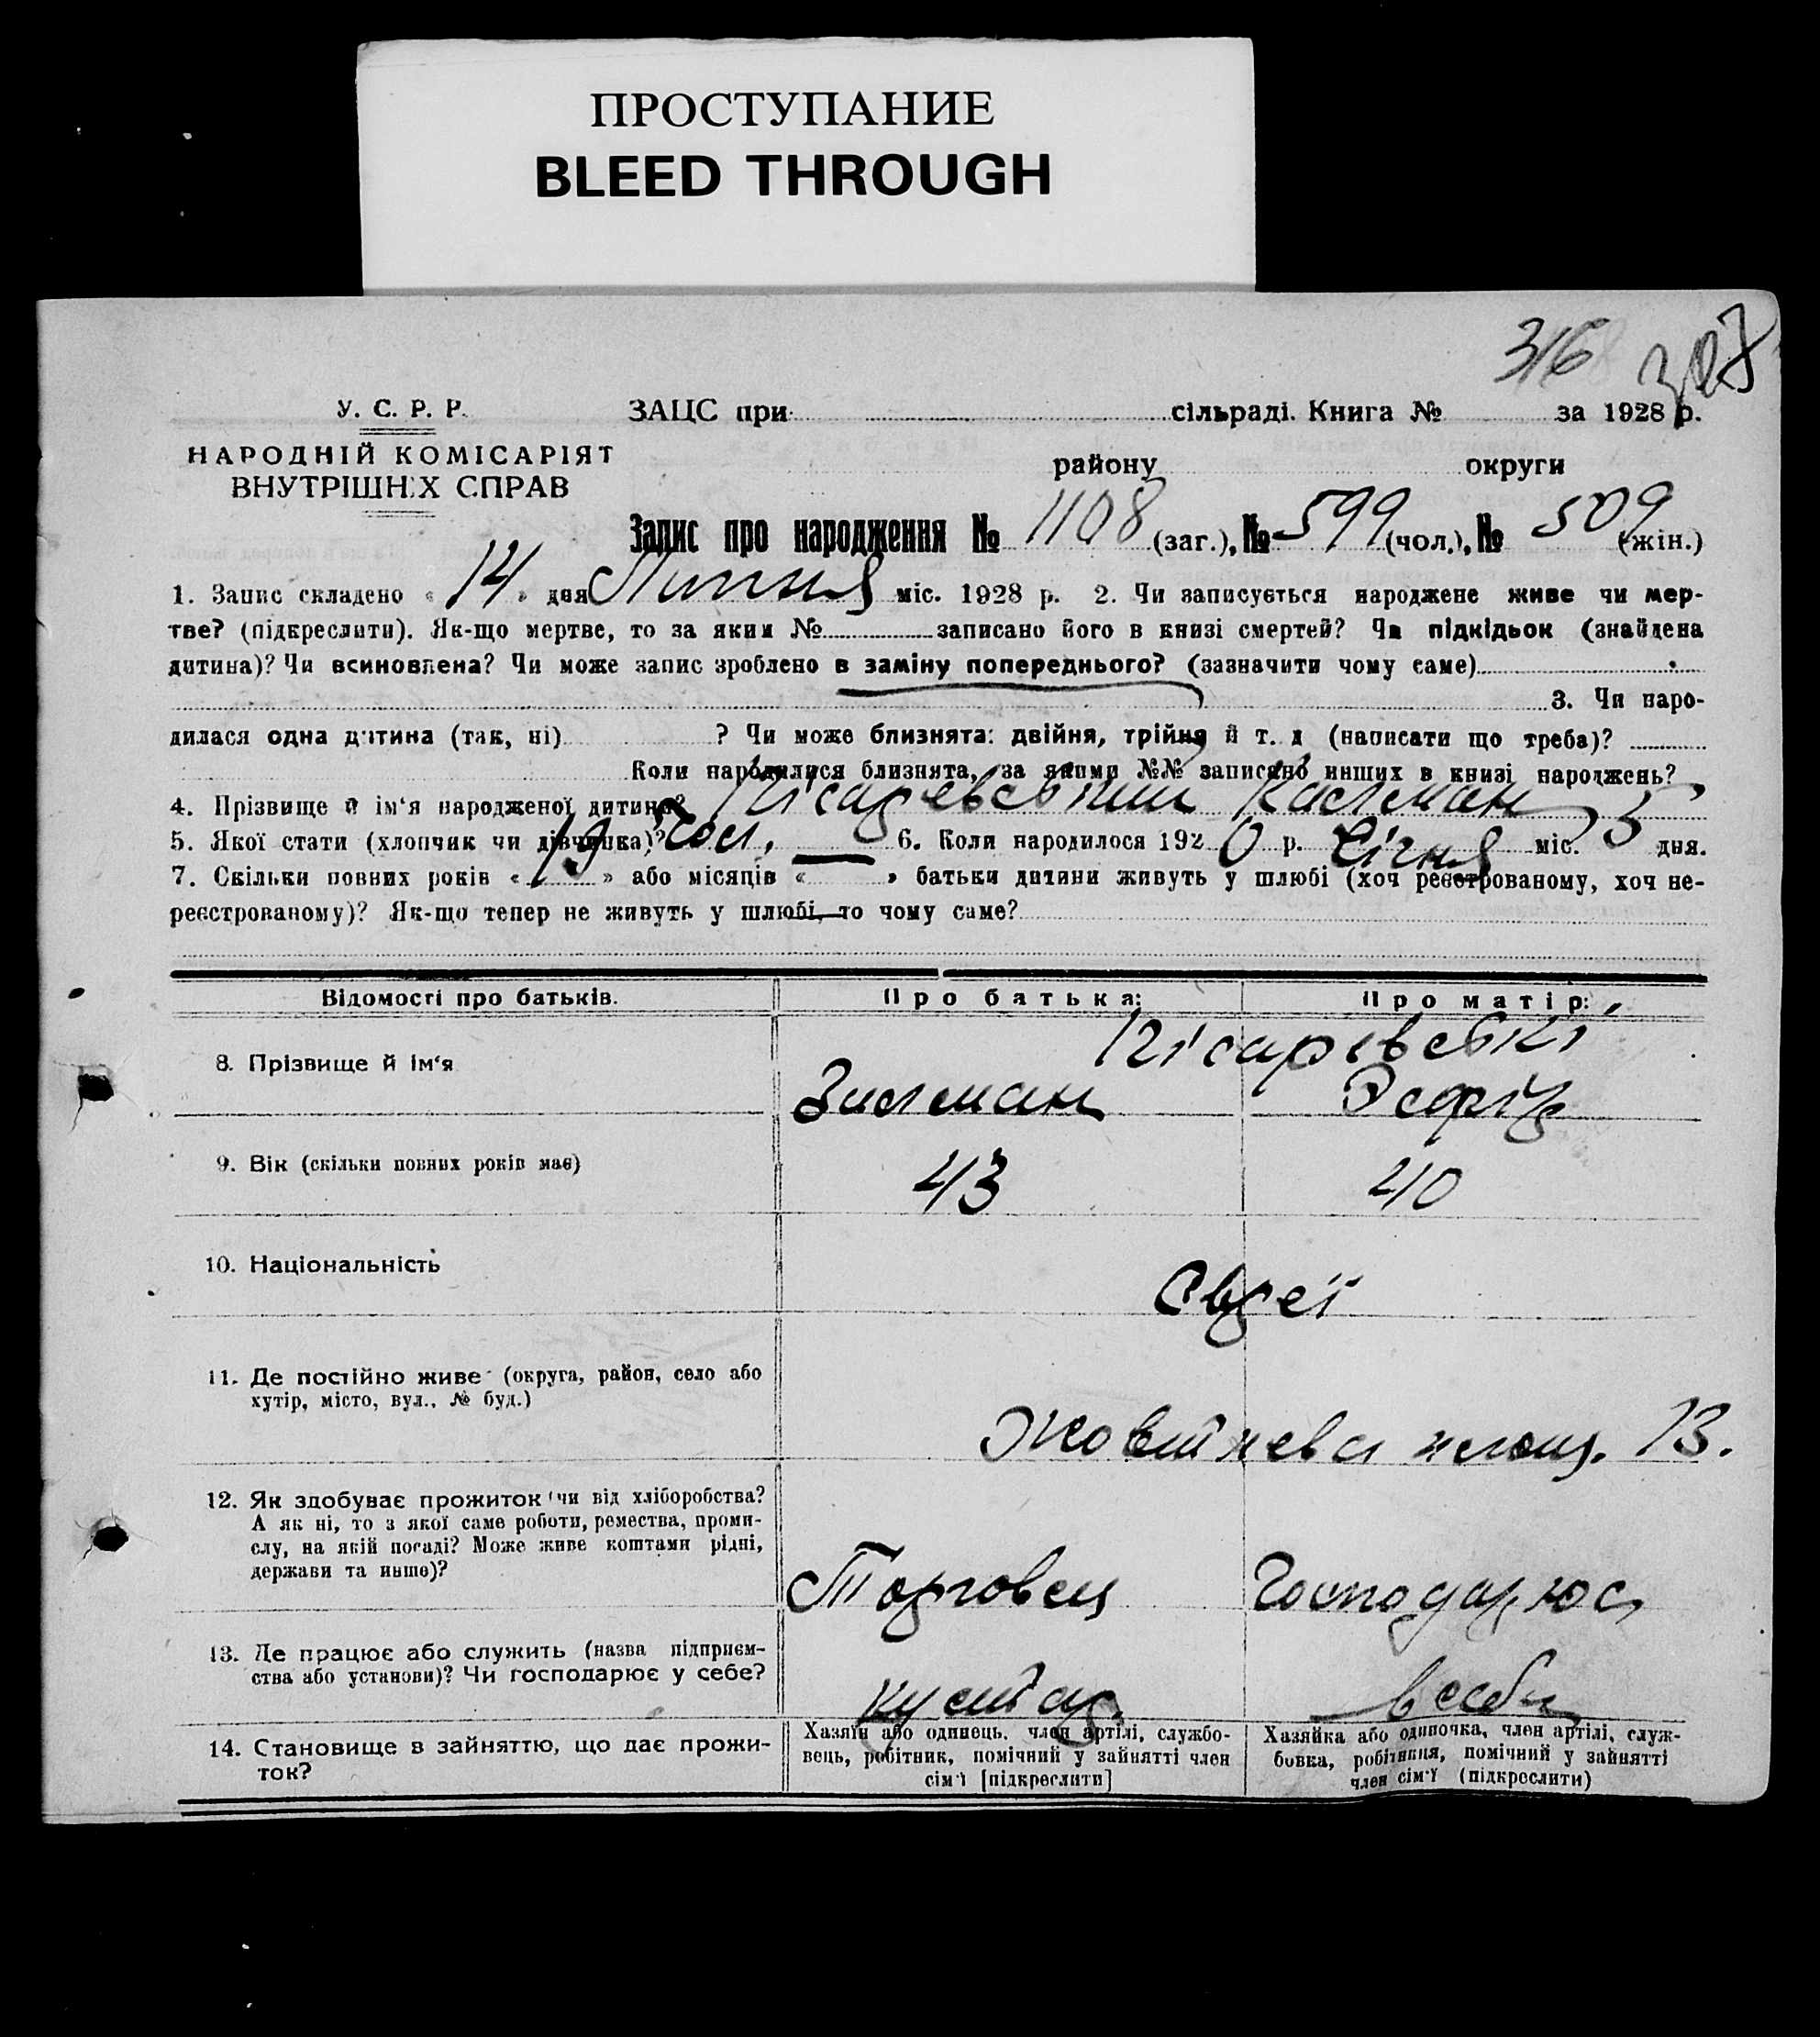 ПРОСТУПАНИЕ
BLEED THROUGH
316 307
У. С. Р. Р. ЗАЦС при сільраді. Книга № за 1928 р.
НАРОДНІЙ КОМІСАРІЯТ
ВНУТРІШНІХ СПРАВ
району округи
Запис про народження № 1108 (заг.), № 599 (чол.), № 509 (жін.)
1. Запис складено « 14 » дня Липня міс. 1928 р. 2. Чи записується народжене живе чи мер-
тве? (підкреслити). Як-що мертве, то за яким № записано його в книзі смертей? Чи підкідьок (знайдена
дитина)? Чи всиновлена? Чи може запис зроблено в заміну попереднього? (зазначити чому саме)
3. Чи наро-
дилася одна дитина (так, ні) ? Чи може близнята: двійня, трійня й т. д (написати що треба)?
Коли народилися близнята, за якими №№ записано инших в книзі народжень?
4. Прізвище й ім‘я народженої дитини? Пісаревський Калман
5. Якої стати (хлопчик чи дівчинка)? Чол. 6. Коли народилося 1920 р. Січня міс. 5 дня.
7. Скільки повних років « 19 » або місяців « — » батьки дитини живуть у шлюбі (хоч реєстрованому, хоч не-
реєстрованому)? Як-що тепер не живуть у шлюбі, то чому саме?
Відомості про батьків. Про батька: Про матір:
Пісарівські
8. Прізвище й ім‘я Зилман
9. Вік (скільки повних років має) 43 40
10. Національність Євреї
11. Де постійно живе (округа, район, село або
хутір, місто, вул., № буд.)
Жовтнева площ. 13.
12. Як здобуває прожиток чи від хліборобства?
А як ні, то з якої саме роботи, ремества, проми-
слу, на якій посаді? Може живе коштами рідні,
держави та инше)?
Торговець Господарює
13. Де працює або служить (назва підприєм-
ства або установи)? Чи господарює у себе?
кустар в себе
14. Становище в зайняттю, що дає прожи-
ток?
Хазяїн або одинець, член артілі, службо-
вець, робітник, помічний у зайнятті член
сім‘ї [підкреслити]
Хазяйка або одиночка, член артілі, служ-
бовка, робітниця, помічний у зайнятті
член сім‘ї (підкреслити)